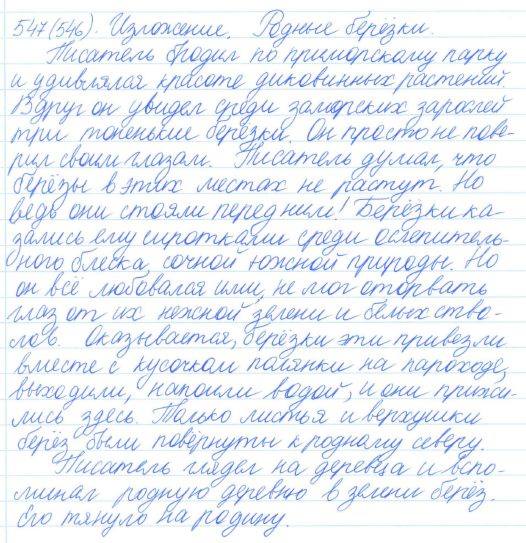 547(546). Изложение. Родные берёзки.
Писатель бродил по приморскому парку
и удивлялся красоте диковинных растений.
Вдруг он увидел среди заморских зарослей
три тоненькие берёзки. Он просто не пове-
рил своим глазам. Писатель думал, что
берёзы в этих местах не растут. Но
ведь они стояли перед ним! Берёзки ка-
зались ему сиротками среди ослепитель-
ного блеска сочной южной природы. Но
он всё любовался ими, не мог оторвать
глаз от их нежной зелени и белых ство-
лов. Оказывается, берёзки эти привезли
вместе с кусочком полянки на пароходе,
выходили, напоили водой, и они прижи-
лись здесь. Только листья и верхушки
берёз были повёрнуты к родному северу.
Писатель глядел на деревца и вспо-
минал родную деревню в зелени берёз.
Его тянуло на родину.